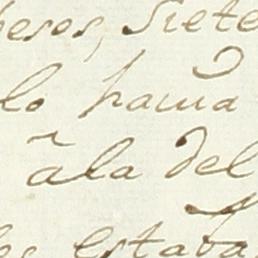 pesos, Siete
lo hauia
ala del
es estaba